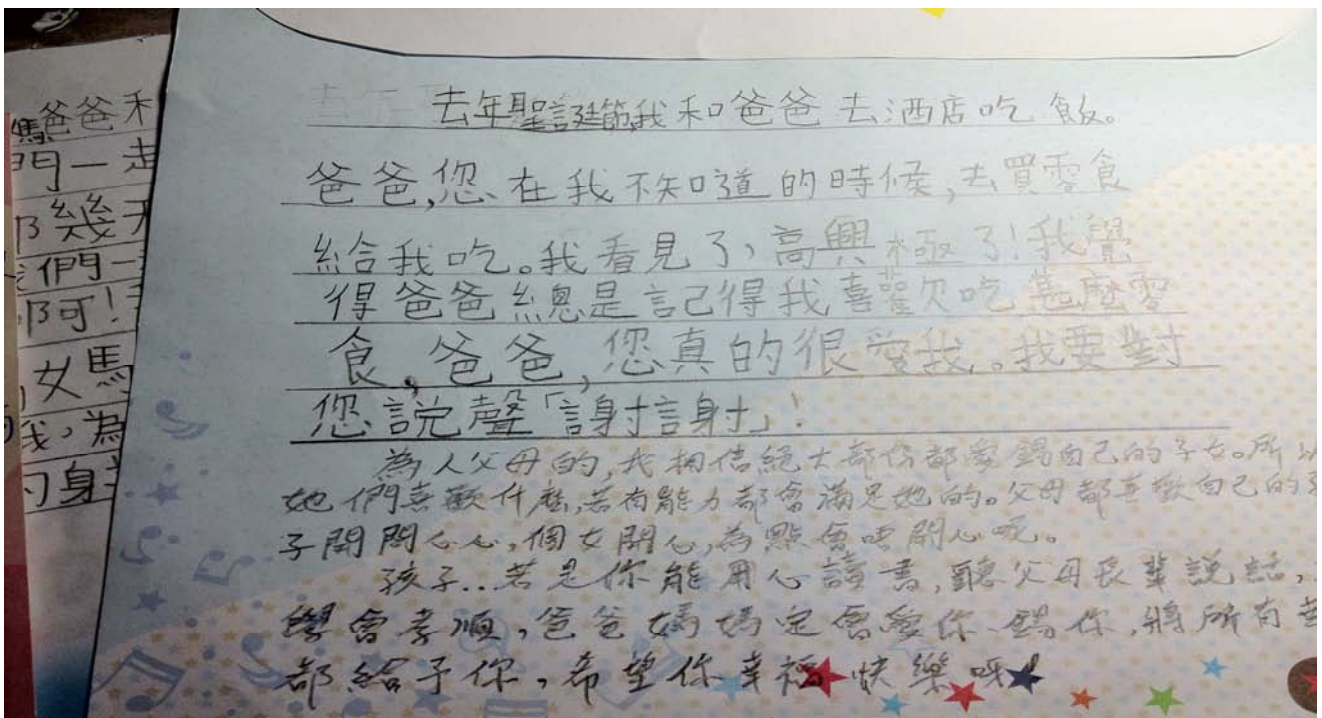 爸爸和
幾
我,為
去年聖誕節我和爸爸去酒店吃飯。
爸爸,您在我不知道的時候,去買零食
給我吃。我看見了,高興極了!我覺
得爸爸總是記得我喜歡吃甚麼零
食,爸爸,您真的很愛我。我要對
您說聲「謝謝」!
為人父母的,我相信絕大部份都愛錫自己的子女。所以
她們喜歡什麼,若有能力都會滿足她的。父母都喜歡自己的
子開開心心,個女開心,為點會唔開心呢。
孩子..若是你能用心讀書,聽父母長輩說話,
學會孝順,爸爸媽媽定會愛你錫你,將所有
都給予你,希望你幸福快樂呀